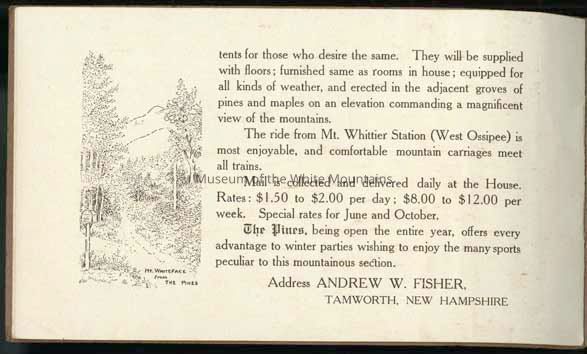 tents for those who desire the same. They will be supplied
with floors; furnished same as rooms in house; equipped for
all kinds of weather, and erected in the adjacent groves of
pines and maples on an elevation commanding a magnificent
view of the mountains.
The ride from Mt. Whittier Station (West Ossipee) is
most enjoyable, and comfortable mountain carriages meet
all trains.
Museum of the White Mountains
Mail is collected and delivered daily at the House.
Rates: $1.50 to $2.00 per day; $8.00 to $12.00 per
week. Special rates for June and October.
The Pines, being open the entire year, offers every
advantage to winter parties wishing to enjoy the many sports
peculiar to this mountainous section.
Address ANDREW W. FISHER,
TAMWORTH, NEW HAMPSHIRE
MT. WHITEFACE
FROM
THE PINES